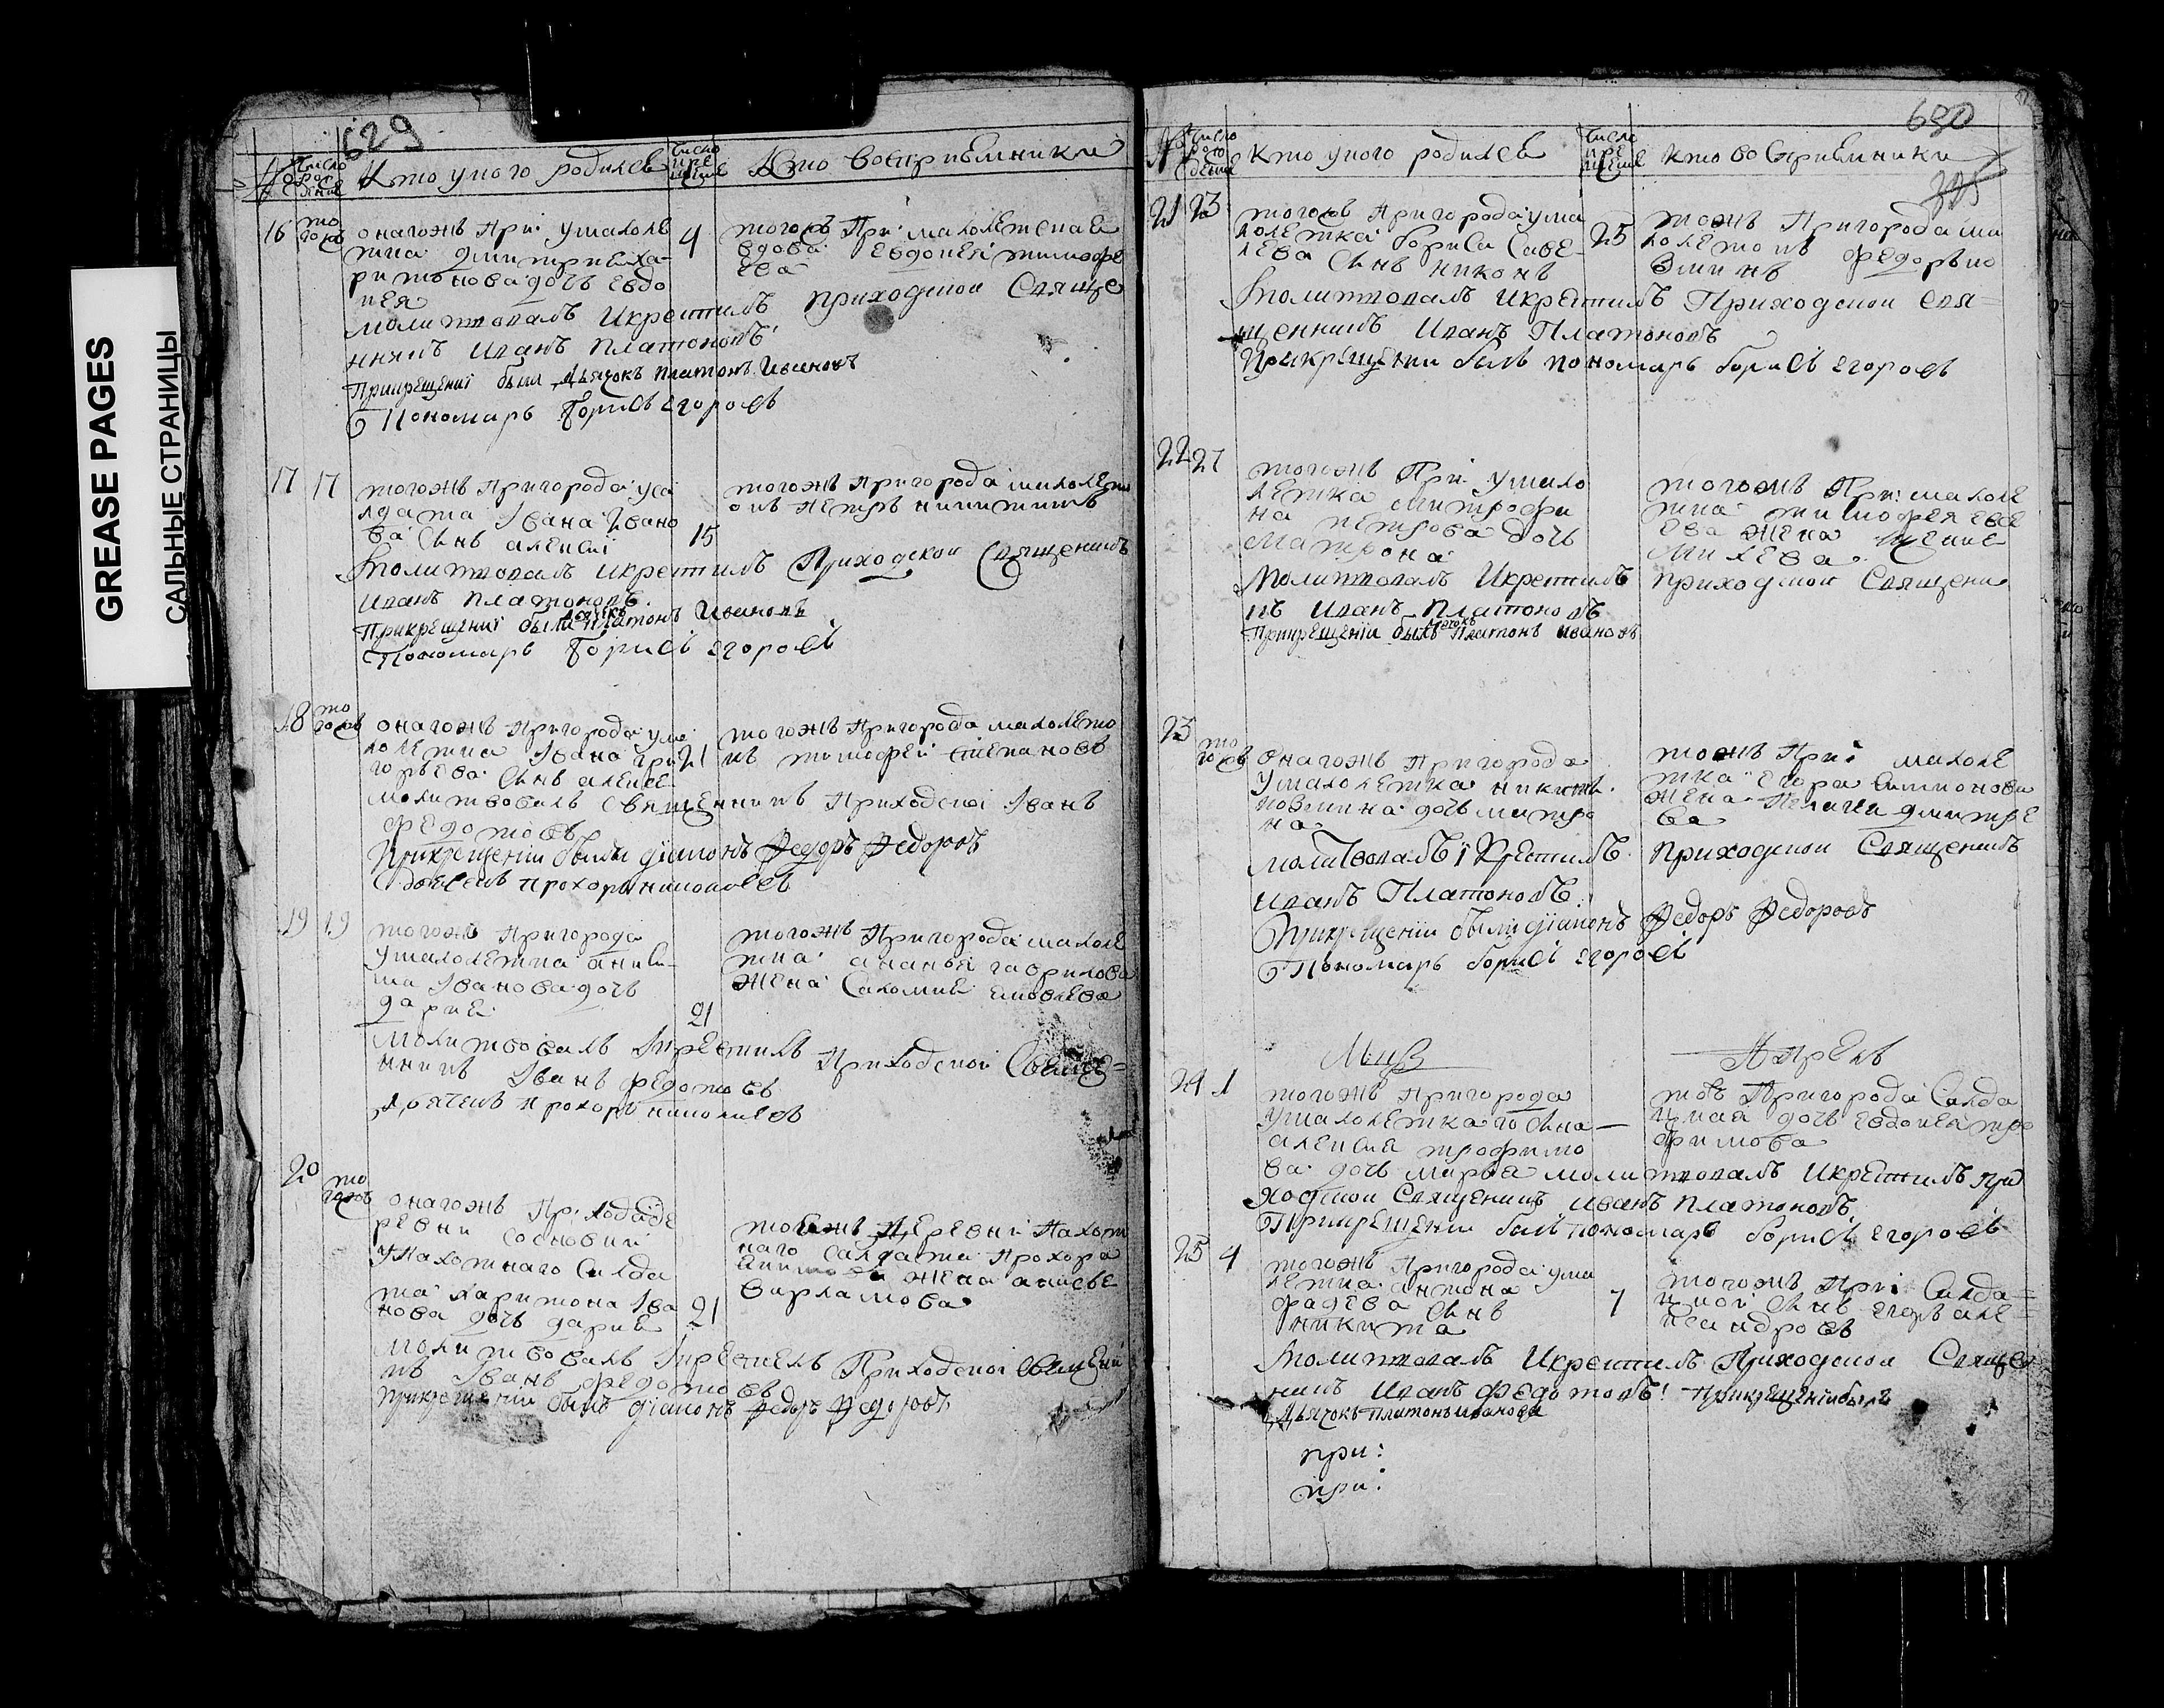 GREASE PAGES
САЛЬНЫЕ СТРАНИЦЫ
629
Число рождение
Кто у кого родилсе
Число крещение
Кто восприемники
16
того жъ
онагожъ При: умалоле
тка дмитриеха
ритонова дочь евдо
кея
4
тогожъ При: малолетская
вдова евдокея тимофе
ева
молитвовалъ икрестилъ приходской Свяще
нникъ Иванъ Платоновъ
Прикрещениі были Дьячокъ Платонъ Ивановъ
Пономарь борисъ егоровъ
17
17
тогожъ Пригорода уса
лдата Івана Івано
ва сынъ алексеі
15
тогожъ Пригорода малолето
къ петръ никитинъ
молитвовалъ икрестилъ Приходской Священникъ
Иванъ Платоновъ
Прикрещениі были дьячекъ Платонъ Ивановъ
Пономарь борисъ егоровъ
18
того жъ
онагожъ Пригорода ума
лолетка Івана гри
горьева сынъ алексе
21
тогожъ Пригорода малолето
къ тимофеи степановъ
молитвовалъ священникъ Приходскоі Іванъ
федотовъ
Прикрещениі были діаконъ Федоръ Федоровъ
дьячекъ прохоръ николаевъ
19
19
тогожъ Пригорода
умалолетка аниси
ма Іванова дочь
дарие
21
тогожъ Пригорода малоле
тка ананья гаврилова
жена саломие яковлева
молитвовалъ Ікрестилъ Приходскоі Свяще=
нникъ Іванъ федотовъ
дьячекъ прохоръ николаевъ
20
того жъ
онагожъ При: ходаіде
ревни сосновки
упахотнаго салда
та харитона Іва
нова дочь дарие
21
тоежъ деревни пахот
наго салдата прохора
жена
варламова
молитвовалъ Ікрестилъ Приходскоі священни
къ Іванъ федотовъ
Прикрещениі былъ діаконъ Федоръ Федоровъ
630
325
Число рождение
Кто у кого родилсе
Число крещение
Кто восприемники
21
23
тогожъ Пригорода ума
лолетка бориса саве
лева сынъ никонъ
25
тожъ Пригорода ма
лолетокъ федоръ ко
зминъ
молитвовалъ икрестилъ Приходской свя=
щенникъ Иванъ Платоновъ
Прикрещении былъ пономарь борисъ егоровъ
22
27
тогожъ При: умало
летка митрофа
на петрова дочь
матрона
тогожъ При: малоле
тка тимофея евсе
ева жена
милева
молитвовалъ Икрестилъ приходской Священи
къ Иванъ Платоновъ
Прикрещениі былъ дьячокъ Платонъ Ивановъ
23
того жъ
онагожъ Пригорода
умалолетка никиты
козмина дочь матро
на
тожъ При: малоле
тка егора симонова
жена Пелагея дмитре
ва
молитвовалъ і крестилъ приходской Священикъ
Иванъ Платоновъ
Прикрещениі были діаконъ Федоръ Федоровъ
Пономарь борисъ егоровъ
Мцъ
Апрель
24
1
тогожъ Пригорода
умалолетка госына
алексея трофимо
ва дочь марья
товъ Пригорода салда
цкая дочь евдокея тро
фимова
молитвовалъ икрестилъ при
ходской Священикъ иванъ Платоновъ
Прикрещениі былъ пономарь борисъ егоровъ
25
4
тогожъ Пригорода ума
летка антона
фадева сынъ
никита
7
тогожъ При: салда=
цкой сынъ егоръ але=
ксандровъ
молитвовалъ Икрестилъ Приходской Священ
никъ Иванъ Федотовъ! Прикрещениі былъ
Дьячокъ Платонъ Ивановъ
при:
при: